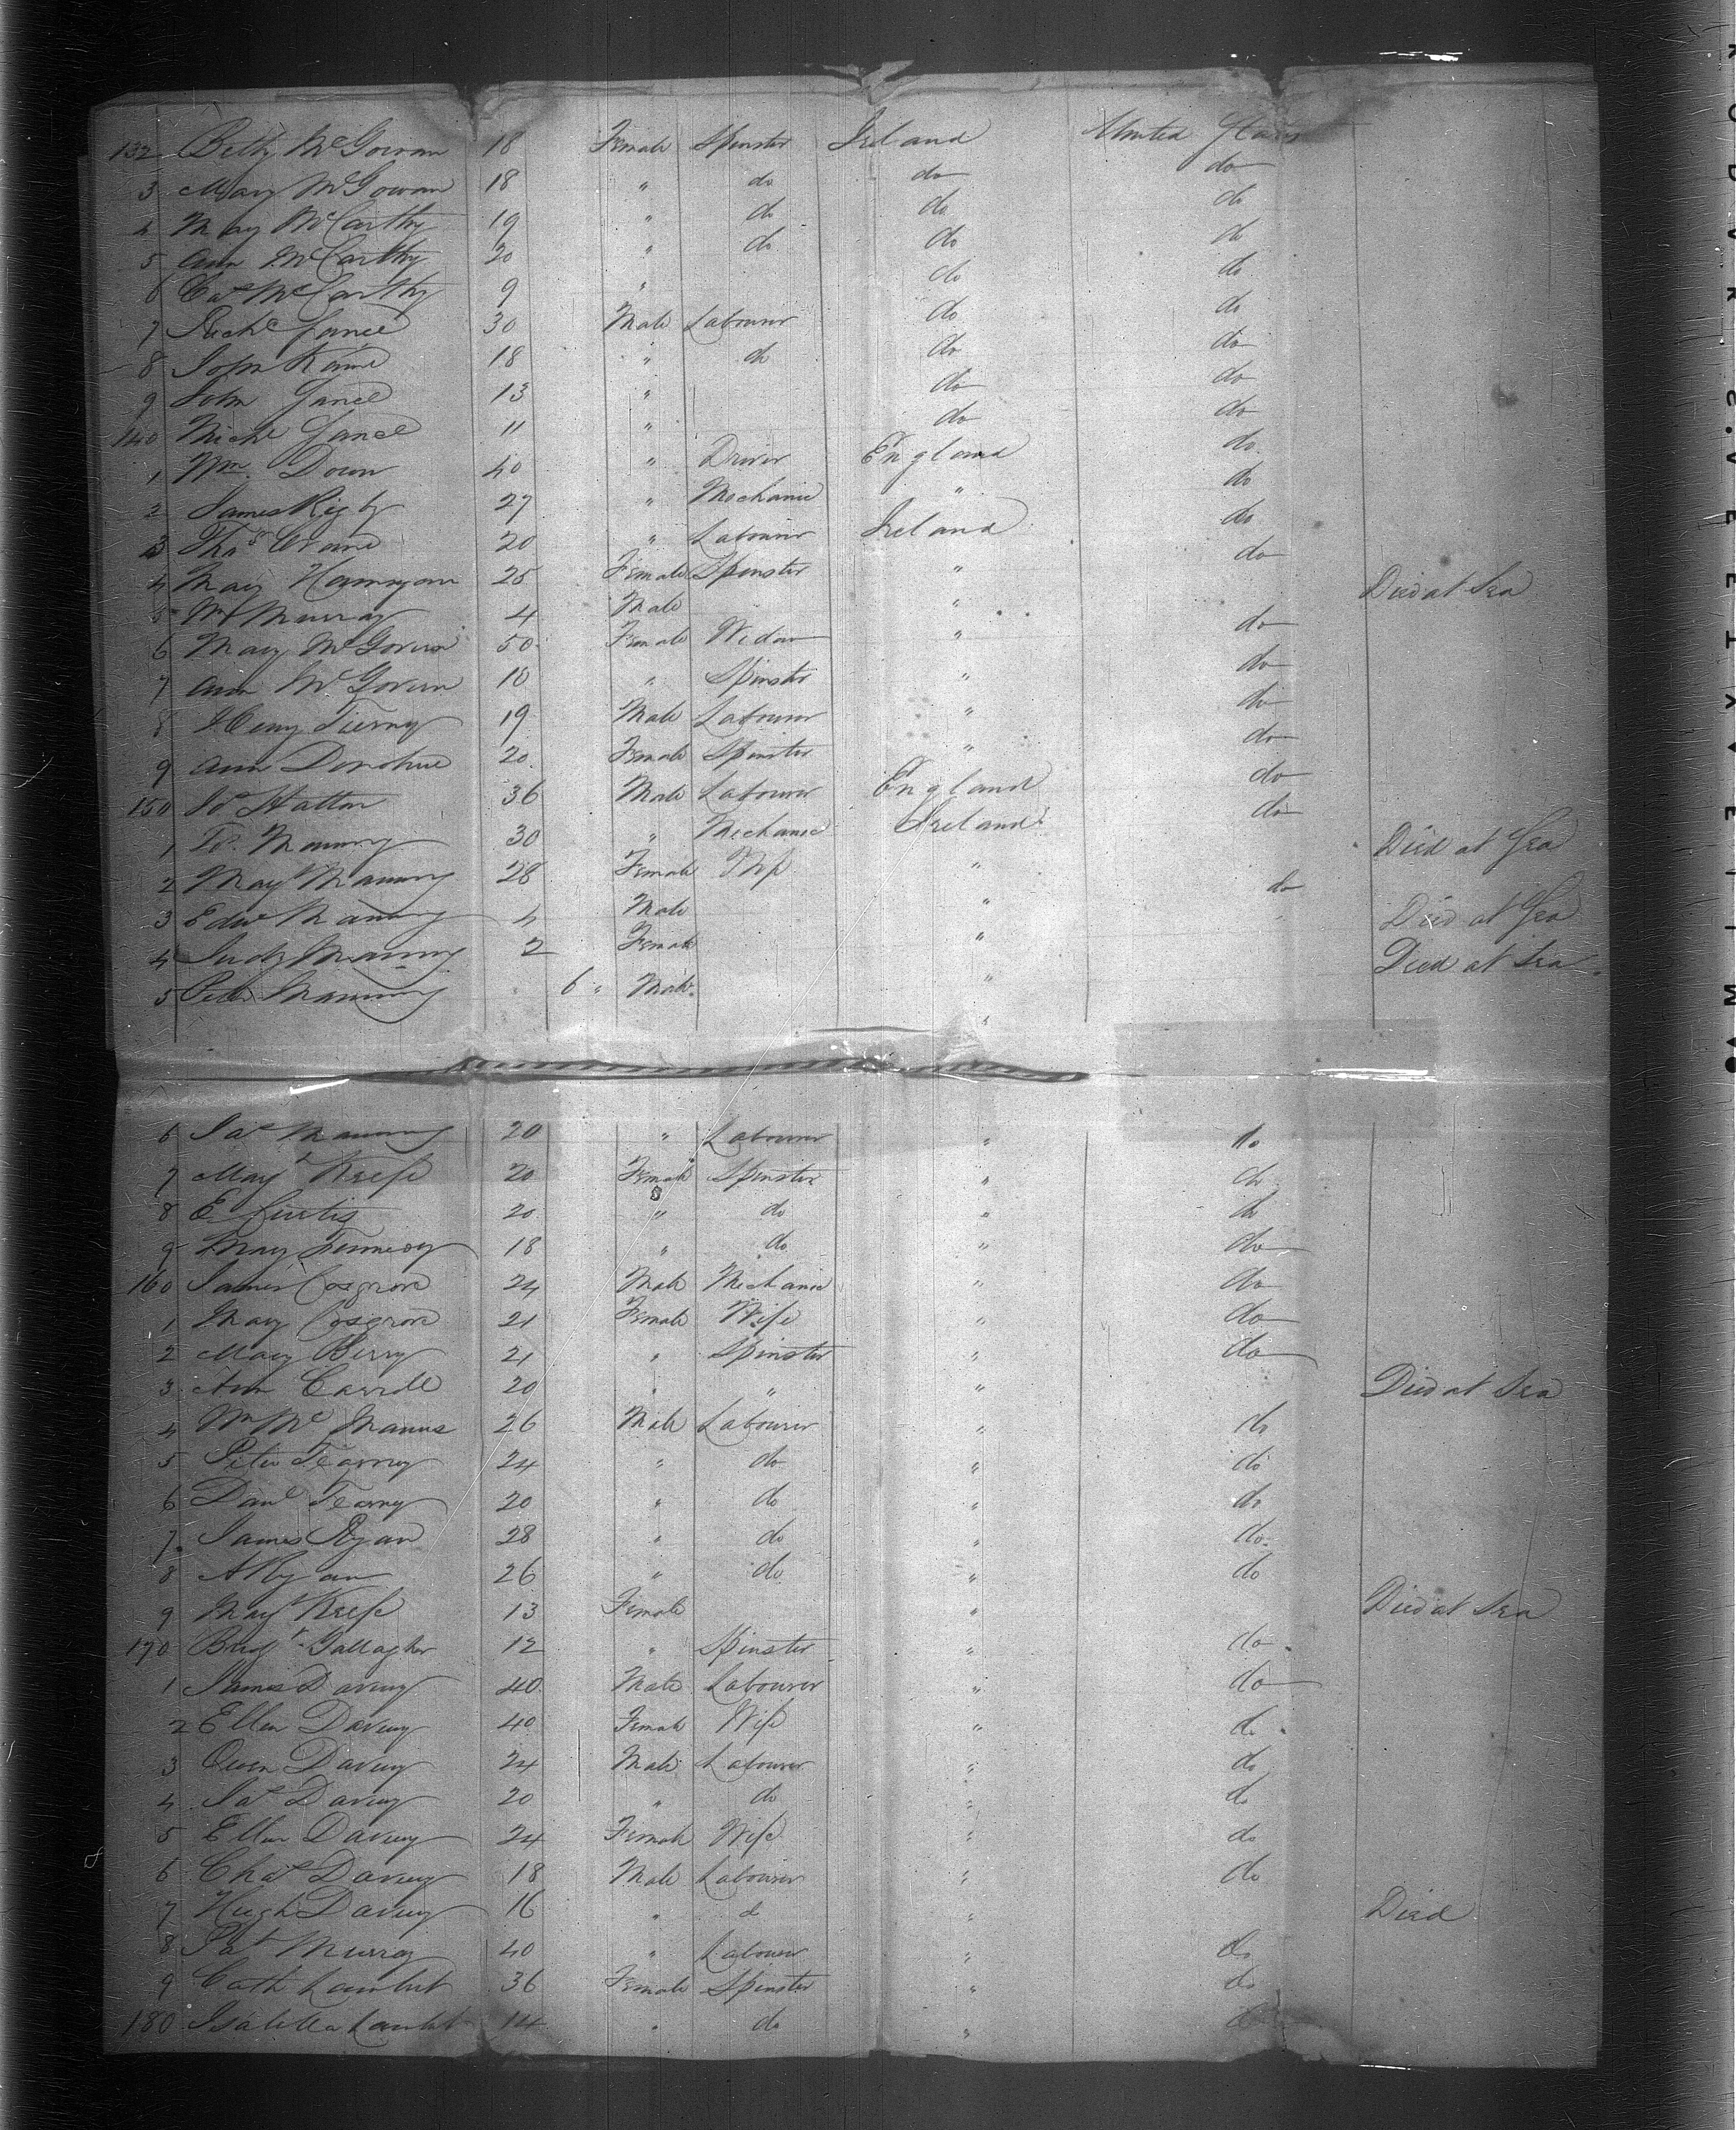 132 Betty McGowan 18 Female Spinster Ireland United States
3 Mary McGowan 18 " do do do
4 Mary McCarthy 19 " do do do
5 Ann McCarthy 20 " do do do
6 McCarthy 9 " do do
7 30 Male Labourer do do
8 John Kane 18 " do do do
9 John 13 " do do
140 Michl 11 " do do
1 Wm. Down 40 " Driver England do
2 James Rigby 27 " Mechanic " do
3 Thos Crane 20 " Labourer Ireland do
4 Mary 25 Female Spinster " do
5 Wm Murray 4 Male " Died at Sea
6 Mary McGovern 50 Female Widow " do
7 Ann McGovern 10 " Spinster " do
8 Henry Tierny 19 Male Labourer " do
9 Ann Donohue 20 Female Spinster " do
150 Hatton 36 Male Labourer England do
1 Manning 30 " Mechanic Ireland do
2 Mary Manning 28 Female Wife " Died at Sea
3 Edwd Manning 4 Male " do
4 Judy Manning 2 Female " Died at Sea
5 Peter Manning 6 " Male " Died at Sea
6 Jas Manning 20 " Labourer " do
7 Keefe 20 Female Spinster " do
8 E. Curtis 20 " do " do
9 Mary Kennedy 18 " do " do
160 James Cosgrove 24 Male Mechanic " do
1 Mary Cosgrove 21 Female Wife " do
2 Mary Berry 21 " Spinster " do
3 Ann Carroll 20 " " " Died at Sea
4 Wm McManus 26 Male Labourer " do
5 Peter Tearney 24 " do " do
6 Danl Tearny 20 " do " do
7 James Ryan 28 " do " do
8 A Ryan 26 " do " do
9 Keefe 13 Female " Died at Sea
170 Bridt Gallagher 12 " Spinster " do
1 James Davey 40 Male Labourer " do
2 Ellen Davey 40 Female Wife " do
3 Owen Davey 24 Male Labourer " do
4 Jas Davey 20 " do " do
5 Ellen Davey 24 Female Wife " do
6 Chas Davey 18 Male Labourer " do
7 Hugh Davey 16 " do " Died
8 Pat Murray 40 " Labourer " do
9 Cath Lambert 36 Female Spinster " do
180 Isabella Lambert 14 " do " do